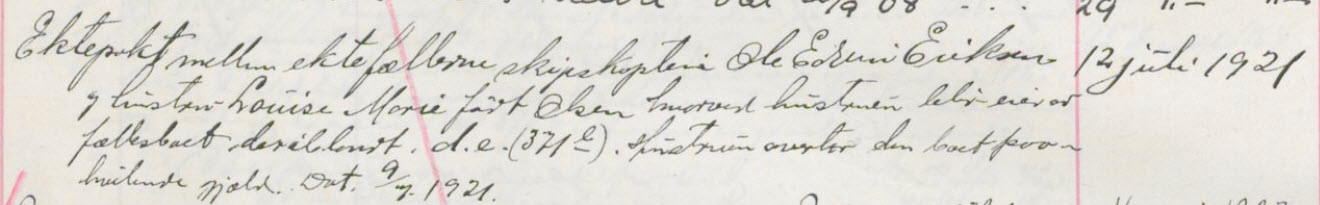 29 "- "-
Ektepakt mellem ektefællerne skipskaptein Ole Edvin Eriksen 12 juli 1921
og hustru Louise Marie født Olsen hvorved hustruen blir eier av
fællesboet deriblandt. d.e. (371 e). Hustruen overtar den boet paa-
hvilende gjæld. Dat. 9/7. 1921.